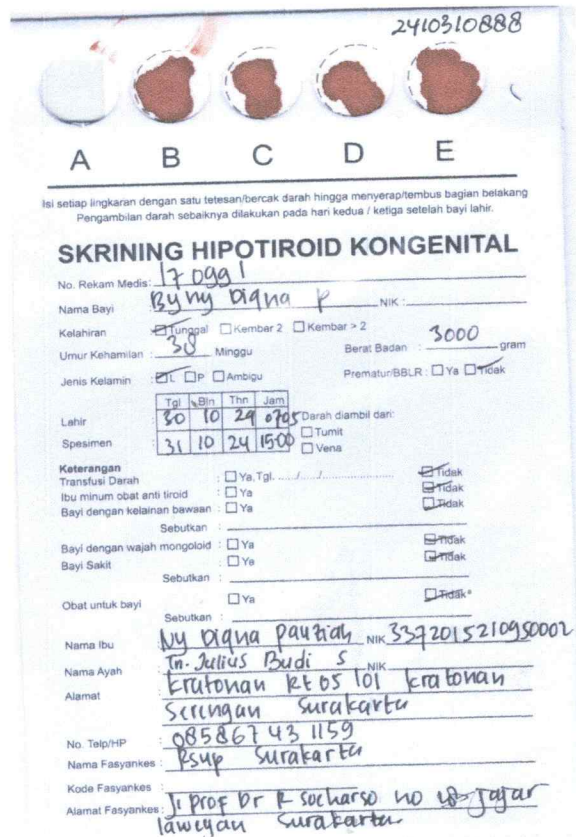 2410310888
A B C D E
Isi setiap lingkaran dengan satu tetesan/bercak darah hingga menyerap/tembus bagian belakang
Pengambilan darah sebaiknya dilakukan pada hari kedua / ketiga setelah bayi lahir.
SKRINING HIPOTIROID KONGENITAL
No. Rekam Medis: 170991
Nama Bayi : By ny Diqna P NIK :
Kelahiran : Tunggal Kembar 2 Kembar > 2
Umur Kehamilan : 38 Minggu Berat Badan : 3000 gram
Jenis Kelamin : L P Ambigu Prematur/BBLR : Ya Tidak
Tgl Bln Thn Jam
Lahir : 30 10 24 0705 Darah diambil dari:
Tumit
Spesimen : 31 10 24 15.00
Vena
Keterangan
Transfusi Darah : Ya, Tgl. ....../....../...................... Tidak
Ibu minum obat anti tiroid : Ya Tidak
Bayi dengan kelainan bawaan : Ya Tidak
Sebutkan :
Bayi dengan wajah mongoloid : Ya Tidak
Bayi Sakit : Ya Tidak
Sebutkan :
Obat untuk bayi Ya Tidak*
Sebutkan :
Nama Ibu : Ny Diqna Pauziah NIK 3372015210950002
Nama Ayah : Tn. Julius Budi S NIK
Alamat : Kratonan Rt 05 101 kratonan
Serengan Surakarta
No. Telp/HP : 085867431159
Nama Fasyankes : Rsup Surakarta
Kode Fasyankes :
Alamat Fasyankes : Jl prof Dr R soeharso no Jajar
laweyan Surakarta